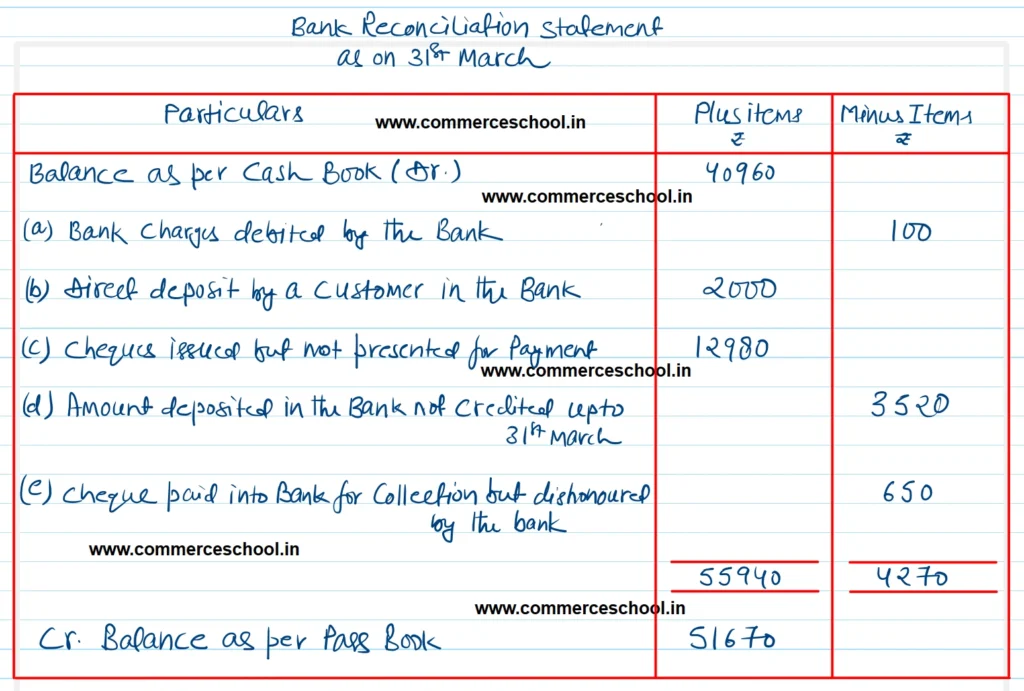 Bank Reconciliation Statement
as on 31st March
Particulars www.commerceschool.in Plus items Minus Items
₹ ₹
Balance as per Cash Book (Dr.) 40960
www.commerceschool.in
(a) Bank Charges debited by the Bank 100
(b) Direct deposit by a Customer in the Bank 2000
(c) Cheques issued but not presented for Payment 12980
www.commerceschool.in
(d) Amount deposited in the Bank not Credited upto 3520
31st March
(e) Cheque paid into Bank for Collection but dishonoured 650
by the bank
www.commerceschool.in
55940 4270
www.commerceschool.in
Cr. Balance as per Pass Book 51670